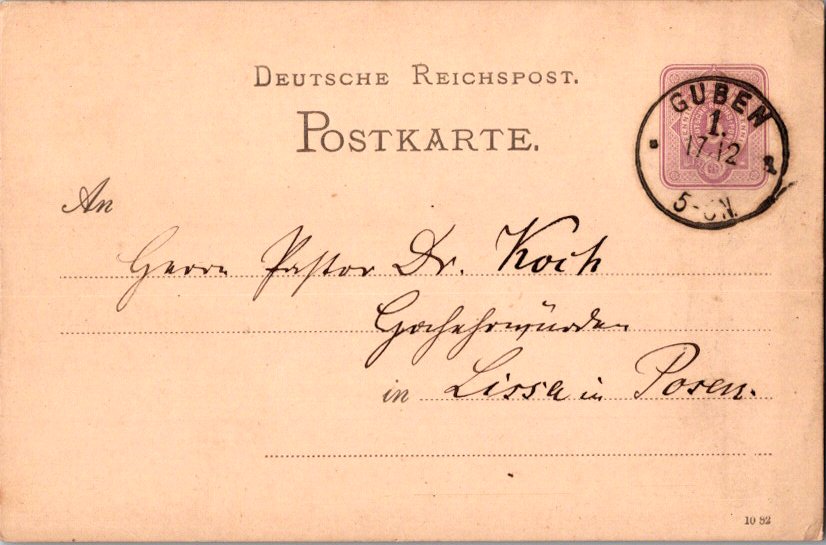 DEUTSCHE REICHSPOST.
POSTKARTE.
GUBEN
1.
17 12
5-N.
An
Herrn Pastor Dr. Koch
Hochehrwürden
in Lissa in Posen.
10 82